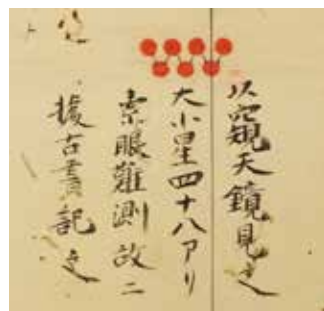 以窺天鏡見之
大小星四十八アリ
素眼難測故ニ
據古書記之